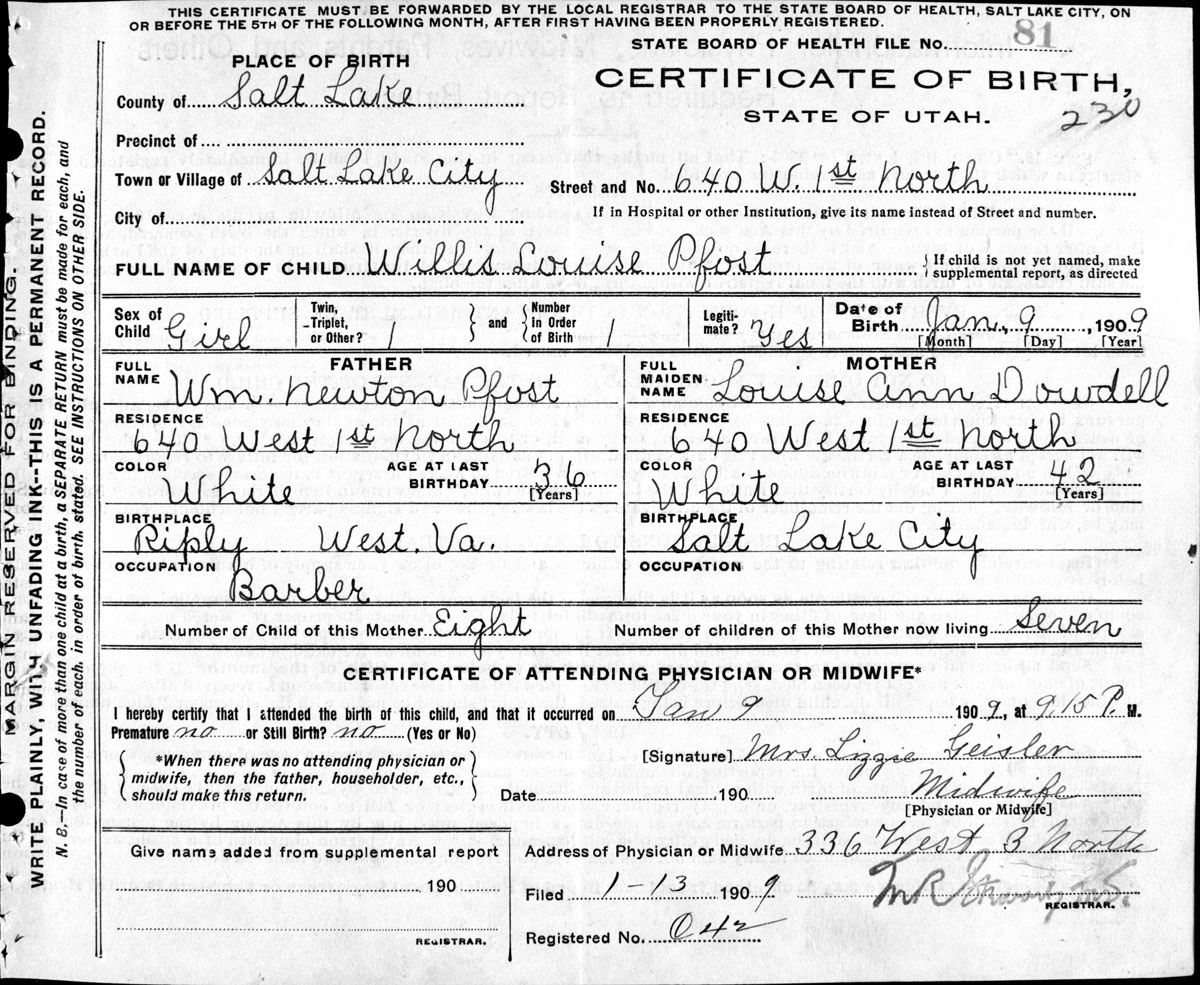 THIS CERTIFICATE MUST BE FORWARDED BY THE LOCAL REGISTRAR TO THE STATE BOARD OF HEALTH, SALT LAKE CITY, ON
OR BEFORE THE 5TH OF THE FOLLOWING MONTH, AFTER FIRST HAVING BEEN PROPERLY REGISTERED.
STATE BOARD OF HEALTH FILE No. 81
PLACE OF BIRTH
CERTIFICATE OF BIRTH,
STATE OF UTAH.
230
County of Salt Lake
Precinct of
Town or Village of Salt Lake City
Street and No. 640 W. 1st North
City of
If in Hospital or other Institution, give its name instead of Street and number.
FULL NAME OF CHILD Willis Louise Pfost
If child is not yet named, make
supplemental report, as directed
Sex of Child Girl
Twin, Triplet, or Other? 1
and
Number In Order of Birth 1
Legiti-mate? Yes
Date of Birth Jan. 9, 1909
[Month] [Day] [Year]
FATHER
FULL NAME Wm. Newton Pfost
RESIDENCE
640 West 1st North
COLOR White
AGE AT LAST BIRTHDAY 36
[Years]
BIRTHPLACE
Riply West. Va.
OCCUPATION
Barber
MOTHER
FULL MAIDEN NAME Louise Ann Dowdell
RESIDENCE
640 West 1st North
COLOR White
AGE AT LAST BIRTHDAY 42
[Years]
BIRTHPLACE
Salt Lake City
OCCUPATION
Number of Child of this Mother Eight
Number of children of this Mother now living Seven
CERTIFICATE OF ATTENDING PHYSICIAN OR MIDWIFE*
I hereby certify that I attended the birth of this child, and that it occurred on Jan 9 1909, at 9.15 P. M.
Premature no or Still Birth? no (Yes or No)
*When there was no attending physician or
midwife, then the father, householder, etc.,
should make this return.
[Signature] Mrs. Lizzie Geisler
Date 190
Midwife
[Physician or Midwife]
Give name added from supplemental report
190
REGISTRAR.
Address of Physician or Midwife 336 West 3 North
Filed 1-13 1909
M R
REGISTRAR.
Registered No. 042
MARGIN RESERVED FOR BINDING.
WRITE PLAINLY, WITH UNFADING INK--THIS IS A PERMANENT RECORD.
N. B.—In case of more than one child at a birth, a SEPARATE RETURN must be made for each, and
the number of each, in order of birth, stated. SEE INSTRUCTIONS ON OTHER SIDE.